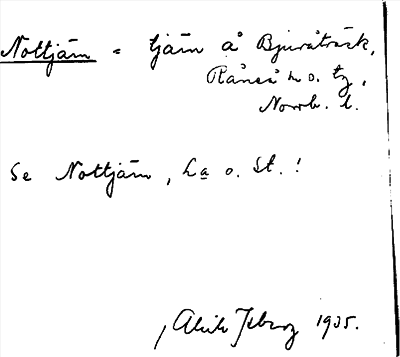 Nottjärn = tjärn å Bjuråträsk,
Råneå ls o. tg,
Norrb. l.
Se Nottjärn, La o. St.!
1935.